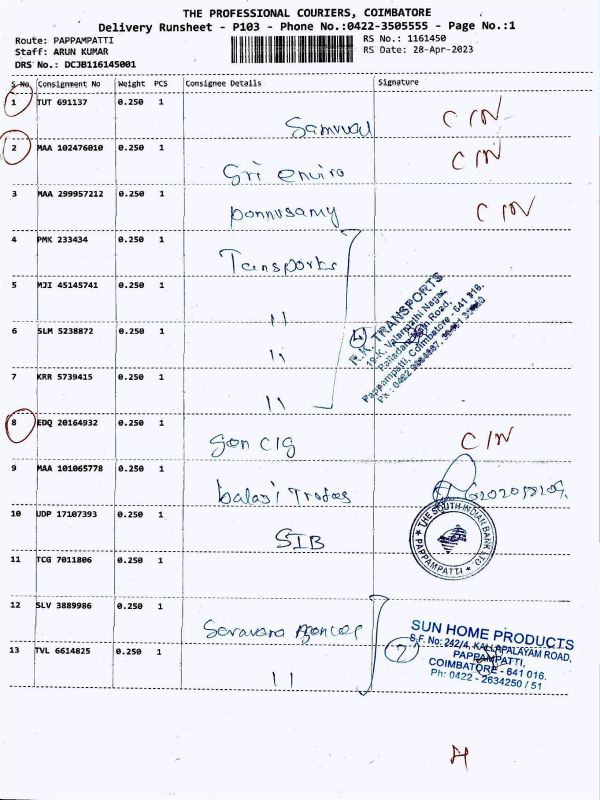 THE PROFESSIONAL COURIERS, COIMBATORE
Delivery Runsheet - P103 - Phone No.:0422-3505555 - Page No.:1
Route: PAPPAMPATTI
RS No.: 1161450
Staff: ARUN KUMAR
RS Date: 28-Apr-2023
DRS No.: DCJB116145001
S No Consignment No Weight PCS Consignee Details Signature
1 TUT 691137 0.250 1
Samuval C/N
2 MAA 102476010 0.250 1 C/N
Sri enviro
3 MAA 299957212 0.250 1
Ponnusamy C/N
4 PMK 233434 0.250 1
Tansports
5 MJI 45145741 0.250 1
11
6 SLM 5238872 0.250 1
11
7 KRR 5739415 0.250 1
11
4
R.K. TRANSPORTS
19-K, Valarmathi Nagar,
Palladam Main Road,
Pappampatti, Coimbatore - 641 016.
8 EDQ 20164932 0.250 1
C/N
9 MAA 101065778 0.250 1
balaji Trades
10 UDP 17107393 0.250 1
SIB
THE SOUTH INDIAN BANK LTD
* PAPPAMPATTI *
11 TCG 7011806 0.250 1
12 SLV 3889986 0.250 1
Saravana Agencies
13 TVL 6614825 0.250 1
11
2
SUN HOME PRODUCTS
S.F. No: 242/4, KALLAPALAYAM ROAD,
PAPPAMPATTI,
COIMBATORE - 641 016.
Ph: 0422 - 2634250 / 51